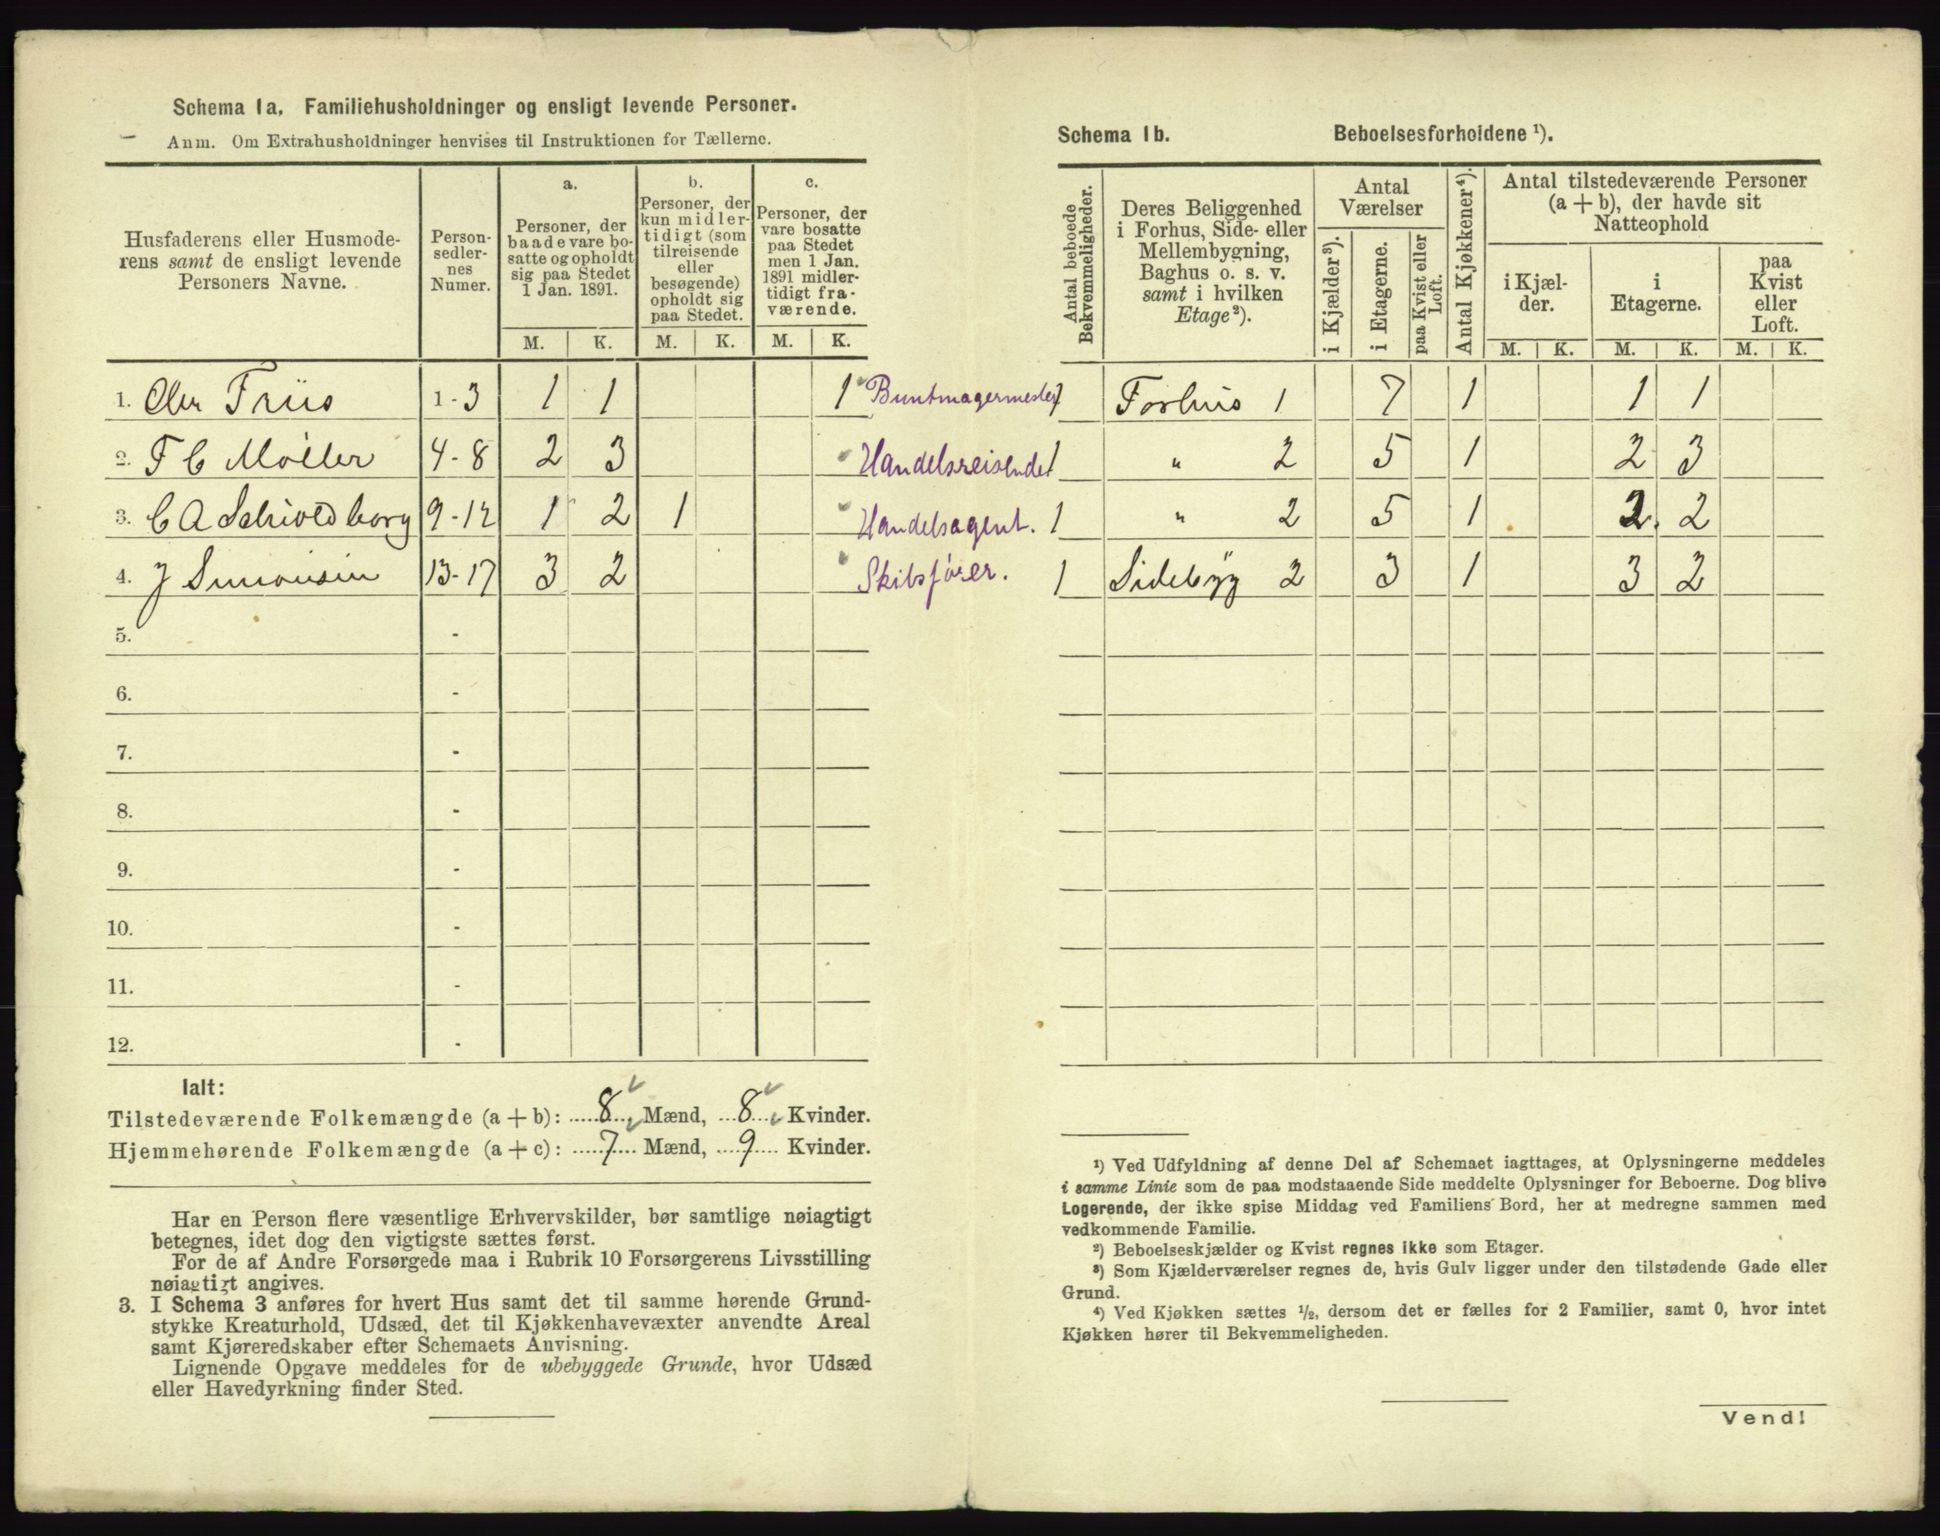 Schema 1a. Familiehusholdninger og ensligt levende Personer.
Anm. Om Extrahusholdninger henvises til Instruktionen for Tællerne.
Husfaderens eller Husmoderens samt de ensligt levende Personers Navne.
Personsedlernes Numer.
a.
Personer, der baade vare bosatte og opholdt sig paa Stedet 1 Jan. 1891.
b.
Personer, der kun midlertidigt (som tilreisende eller besøgende) opholdt sig paa Stedet.
c.
Personer, der vare bosatte paa Stedet men 1 Jan. 1891 midlertidigt fraværende.
M. K. M. K. M. K.
1. Friis 1-3 1 1 1 Buntmagermester
2. F C Möller 4-8 2 3 Handelsreisende
3. C A Schioldborg 9-12 1 2 1 Handelsagent.
4. J Simonsen 13-17 3 2 Skibsfører.
5. -
6. -
7. -
8. -
9. -
10. -
11. -
12. -
Ialt:
Tilstedeværende Folkemængde (a + b): 8 Mænd, 8 Kvinder.
Hjemmehørende Folkemængde (a + c): 7 Mænd, 9 Kvinder.
Har en Person flere væsentlige Erhvervskilder, bør samtlige nøiagtigt
betegnes, idet dog den vigtigste sættes først.
For de af Andre Forsørgede maa i Rubrik 10 Forsørgerens Livsstilling
nøiagtigt angives.
3. I Schema 3 anføres for hvert Hus samt det til samme hørende Grund-
stykke Kreaturhold, Udsæd, det til Kjøkkenhavevæxter anvendte Areal
samt Kjøreredskaber efter Schemaets Anvisning.
Lignende Opgave meddeles for de ubebyggede Grunde, hvor Udsæd
eller Havedyrkning finder Sted.
Schema 1b. Beboelsesforholdene ¹).
Antal beboede Bekvemmeligheder.
Deres Beliggenhed i Forhus, Side- eller Mellembygning, Baghus o. s. v. samt i hvilken Etage ²).
Antal Værelser
i Kjælder ³).
i Etagerne.
paa Kvist eller Loft.
Antal Kjøkkener ⁴).
Antal tilstedeværende Personer (a + b), der havde sit Natteophold
i Kjælder.
i Etagerne.
paa Kvist eller Loft.
M. K. M. K. M. K.
1 Forhus 1 7 1 1 1
1 " 2 5 1 2 3
1 " 2 5 1 2 2
1 Sidebyg 2 3 1 3 2
¹) Ved Udfyldning af denne Del af Schemaet iagttages, at Oplysningerne meddeles
i samme Linie som de paa modstaaende Side meddelte Oplysninger for Beboerne. Dog blive
Logerende, der ikke spise Middag ved Familiens Bord, her at medregne sammen med
vedkommende Familie.
²) Beboelseskjælder og Kvist regnes ikke som Etager.
³) Som Kjælderværelser regnes de, hvis Gulv ligger under den tilstødende Gade eller
Grund.
⁴) Ved Kjøkken sættes ½, dersom det er fælles for 2 Familier, samt 0, hvor intet
Kjøkken hører til Bekvemmeligheden.
Vend!